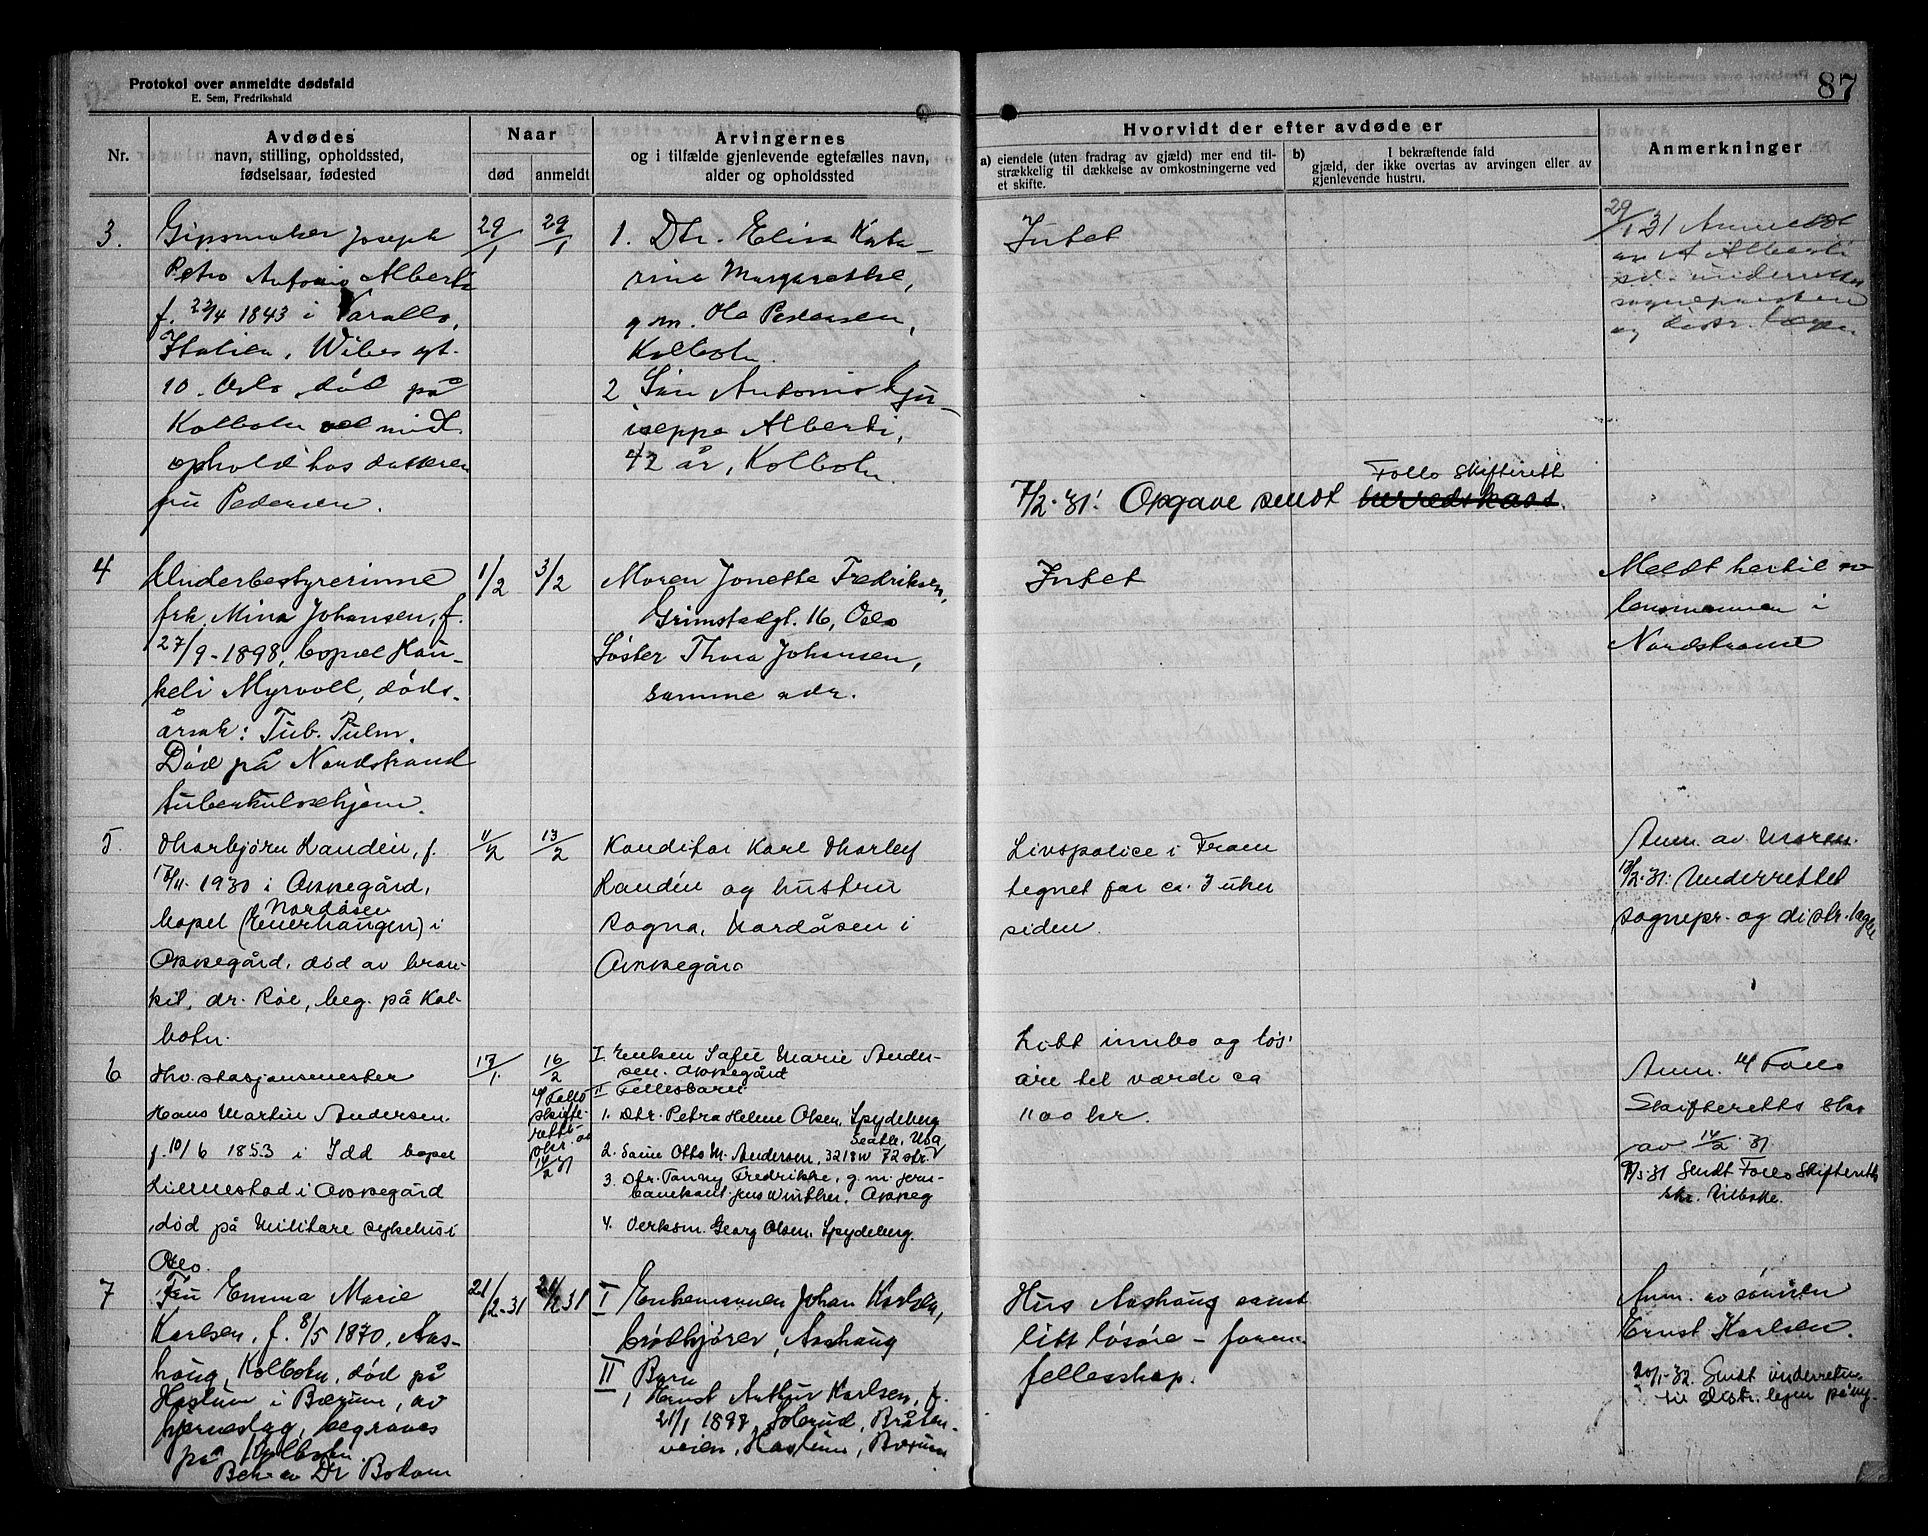 Protokol over anmeldte dødsfald
E. Sem, Fredrikshald
87
Nr.
Avdødes
navn, stilling, opholdssted,
fødselsaar, fødested
Naar
død
anmeldt
Arvingernes
og i tilfælde gjenlevende egtefælles navn,
alder og opholdssted
Hvorvidt der efter avdøde er
a) eiendele (uten fradrag av gjæld) mer end til-
strækkelig til dækkelse av omkostningerne ved
et skifte.
b) I bekræftende fald
gjæld, der ikke overtas av arvingen eller av
gjenlevende hustru.
Anmerkninger
3.
Gipsmaker Joseph
Petro Antonio Alberti
f. 23/4 1843 i Varallo,
Italien, Wibes gt.
10. Oslo, død på
Kolbotn ved midl.
ophold hos datteren
fru Pedersen.
29/1
29/1
1. Dtr. Elisa Kata-
rina Margarethe,
g.m. Ole Pedersen,
Kolbotn.
2 Søn Antonio Gju-
iseppe Alberti,
42 år, Kolbotn.
Intet
7/2-31: Opgave sendt herredskass.
Follo Skifterett
29/1 31 Anmeldt
av A Alberti
underrettet
sognepresten
og distr. lægen
4
Underbestyrerinne
frk. Mina Johansen, f.
27/9-1898, bopæl Hau-
keli Myrvoll, døds-
årsak: Tub. Pulm.
Død på Nordstrand
tuberkulosehjem.
1/2
3/2
Moren Jonette Fredriksen,
Grimstadgt. 16, Oslo
Søster Thora Johansen,
samme adr.
Intet
Meldt hertil av
lensmannen i
Nordstrand
5.
Thorbjørn Randén, f.
17/11. 1930 i Oppegård,
bopel (Enerhaugen) i
Nordåsen
Oppegård, død av bron-
kit, dr. Roe, beg. på Kol-
botn.
11/2
13/2
Konditor Karl Thorleif
Randén og hustru
Ragna, Nordåsen i
Oppegård
Livspolice i Fram
tegnet for ca. 3 uker
siden.
Anm. av Moren.
13/2.31. Underrettet
sognepr. og distr. læge
6
Fhv. stasjonsmester
Hans Martin Andersen
f. 10/6 1853 i Idd bopel
Liernestad i Oppegård
død på Militære sykehus i
Oslo.
17/1.
16/2
Follo
skifte-
retts-
skr. av
14/2 31
I Enken Sofie Marie Ander-
sen. Oppegård
II Fellesbarn
1. Dtr. Petra Helene Olsen, Spydeberg
Seatle, Usa
2. Sønn Otto M. Andersen, 3218 W 72 str.
3. Dtr. Fanny Fredrikke, g.m. jern-
banekont. Jens Winther, Oppeg
4. Verksm. Georg Olsen, Spydeberg.
Løst innbo og løs-
øre til værdi ca
1100 kr.
Anm. Follo
Skifteretts skr
av 14/2.31
Sendt Follo Skifterett
skr. tilbake.
7
Fru Emma Marie
Karlsen, f. 8/5 1870, Aas-
haug, Kolbotn, død på
Haslum i Bærum, av
hjerneslag, begraves
på Kolbotn
Beh. av Dr Botam
21/2-31
24/2 31
I Enkemannen Johan Karlsen,
brødkjører, Aashaug
II Barn
1 Ernst Arthur Karlsen, f.
21/1 1897, Solerud, Bråten-
veien, Haslum, Bærum
Hus Aashaug samt
litt løsøre –
fellesskap.
Anm. av sønnen
Ernst Karlsen.
20/1-32. Sendt underretning
til distr. legen påny.